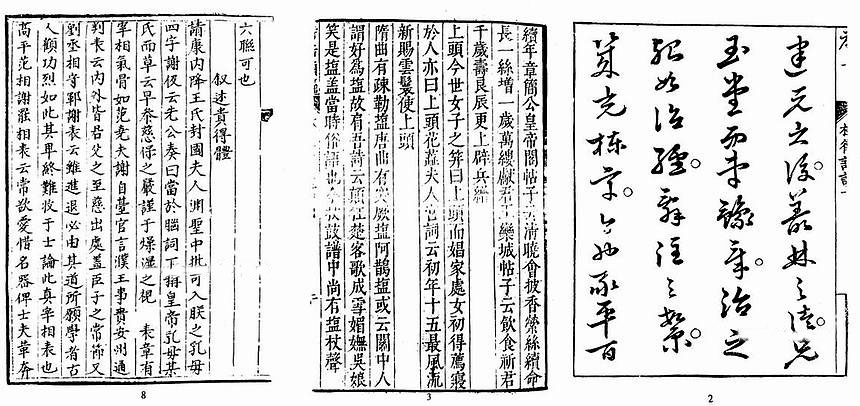 建元之後
玉堂而事
治之
治經
之繁
平百
2
續年章簡公皇帝閤帖子云清曉會披香縈絲續命
長一絲增一歲萬縷獻君王欒城帖子云飲食祈君
千歲壽良辰更上辟兵繒
上頭今世女子之笄曰上頭而娼家處女初得薦寢
於人亦曰上頭花蘂夫人宮詞云初年十五最風流
新賜雲鬟使上頭
隋曲有疎勒塩唐曲有突厥塩阿鵲塩或云關中人
謂好為塩故有吾詩云顛狂楚客歌成雪媚嫵吳娘
笑是塩蓋當時俗語也今杖鼓譜中尚有塩杖聲
3
六聯可也
叙述貴得體
靖康内降王氏封國夫人淵聖中批可入朕之乳母
四字謝伋云先公奏曰當於腦詞下稱皇帝乳母某
氏而草云早參慈保之嚴謹于燥濕之視 表章有
宰相氣骨如范堯夫謝自臺官言濮王事貴安州通
判表云内外皆君父之至慈出處蓋臣子之常節又
劉丞相守鄆謝表云雖進退必由其道所願學者古
人顧功烈如此其卑終難救于士論此真宰相表也
高平范相謝罷相表云常欲愛惜名器俾士夫華奔
8